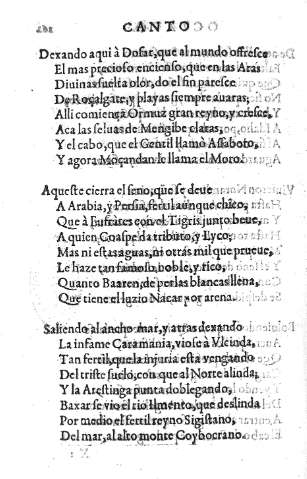 CANTO
Dexando aqui à Dofar, que al mundo ofresce
El mas precioso encienso, que en las Aras
Diuinas suelta olor, do el fin paresce
De Rosalgate, y playas siempre auaras;
Alli comiença Ormuz gran reyno, y cresce,
Aca las seluas de Mengibe claras,
Y el cabo, que el Gentil llamò Assaboto,
Y agora Moçandan le llama el Moro.
Aqueste cierra el seno, que se deue
A Arabia, y Persia, fertil aunque chico,
Que à Eufrates con el Tigris junto beue,
A quien Coaspe da tributo, y Lyco,
Mas ni estas aguas, ni otras mil que prueue,
Le haze tan famoso, noble, y rico,
Quanto Baaren, de perlas blancas llena,
Que tiene el luzio Nacar por arena.
Saliendo al ancho mar, y atras dexando
La infame Caramania, viose à Vlcinda,
Tan fertil, que la injuria esta vengando
Del triste suelo, con que al Norte alinda;
Y la Arestinga punta doblegando,
Baxar se vio el rio Ilmento, que deslinda
Por medio el fertil reyno Sigistano,
Del mar, al alto monte Coybocrano.